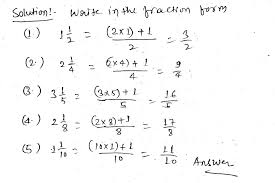 Solution!- Write in the fraction form
(1) 1 1/2 = (2×1)+1/2 = 3/2
(2.) 2 1/4 = (2×4)+1/4 = 9/4
(3.) 3 1/5 = (3×5)+1/5 = 16/5
(4.) 2 1/8 = (2×8)+1/8 = 17/8
(5) 1 1/10 = (10×1)+1/10 = 11/10 Answer